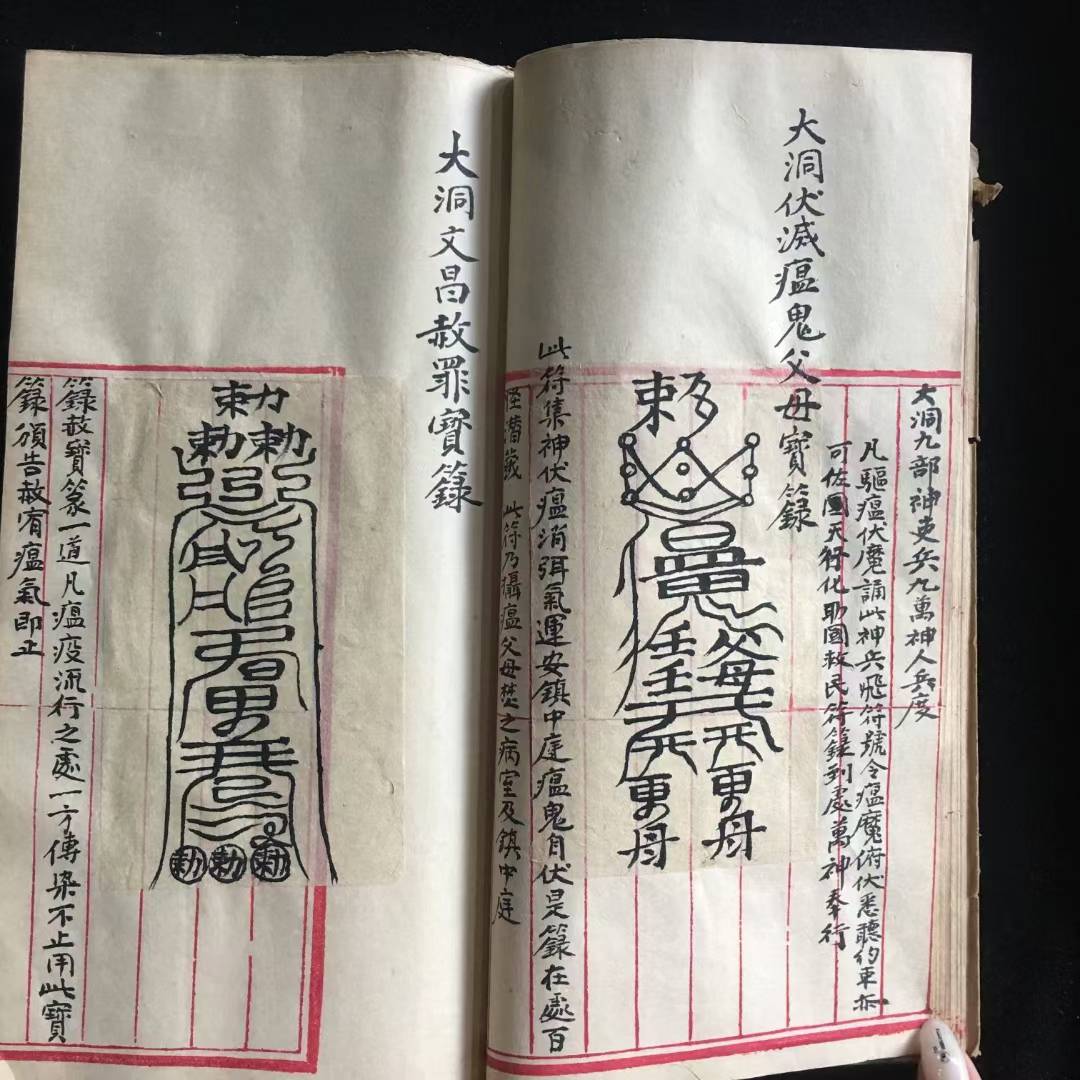 大洞九部神吏兵九萬神人兵度
凡驅瘟伏魔誦此神兵飛符號令瘟魔俯伏悉聽約束亦
可佐國天行化助國救民符籙到處萬神奉行
大洞伏滅瘟鬼父母寶籙
敕
父母
更
母
此符集神伏瘟消弭氣運安鎮中庭瘟鬼自伏是籙在處百
怪潛藏 此符乃攝瘟父母焚之病室及鎮中庭
大洞文昌赦罪寶籙
勅
勅勅
勅勅勅
籙赦寶篆一道凡瘟疫流行之處一方傳染不止用此寶
籙頒告赦宥瘟氣即止